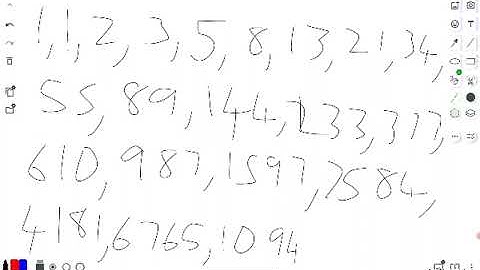 1,1,2,3,5,8,13,21,34,
55,89,144,233,377,
610,987,1597,2584,
4181,6765,1094